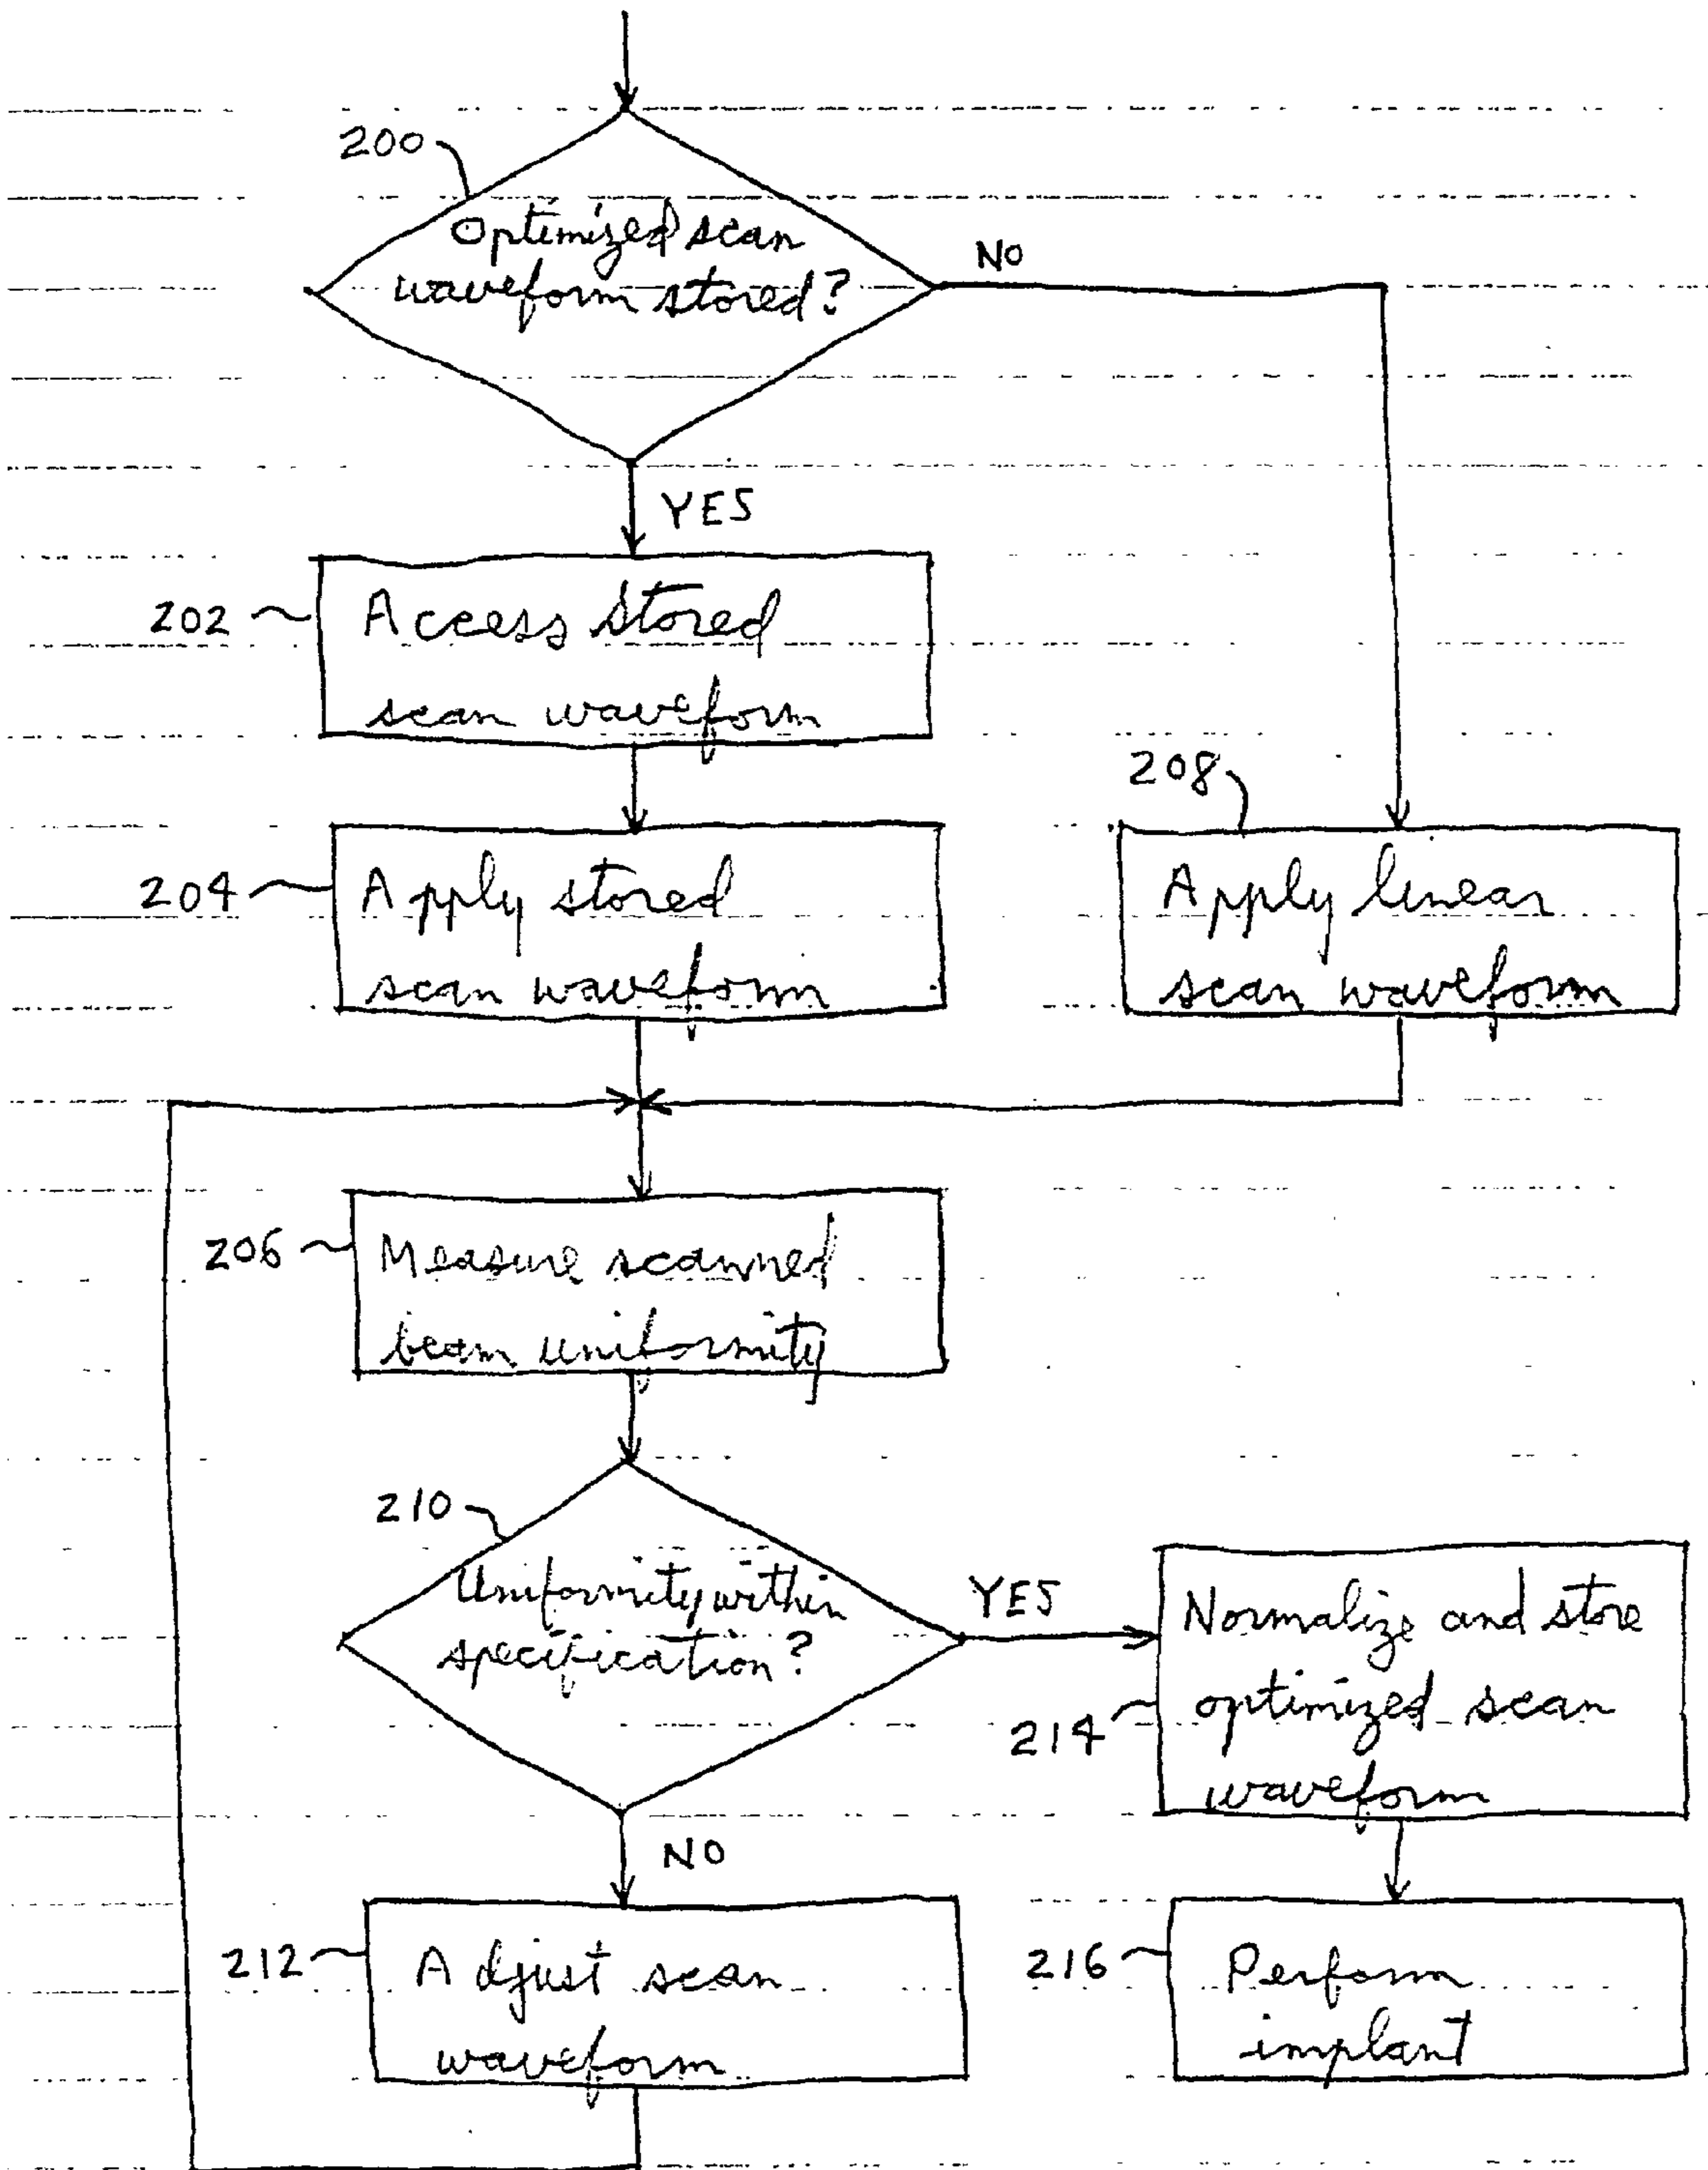 200
Optimized scan
waveform stored?
NO
YES
202
Access stored
scan waveform
204
Apply stored
scan waveform
208
Apply linear
scan waveform
206
Measure scanned
beam uniformity
210
Uniformity within
specification?
YES
Normalize and store
optimized scan
waveform
214
NO
212
Adjust scan
waveform
216
Perform
implant